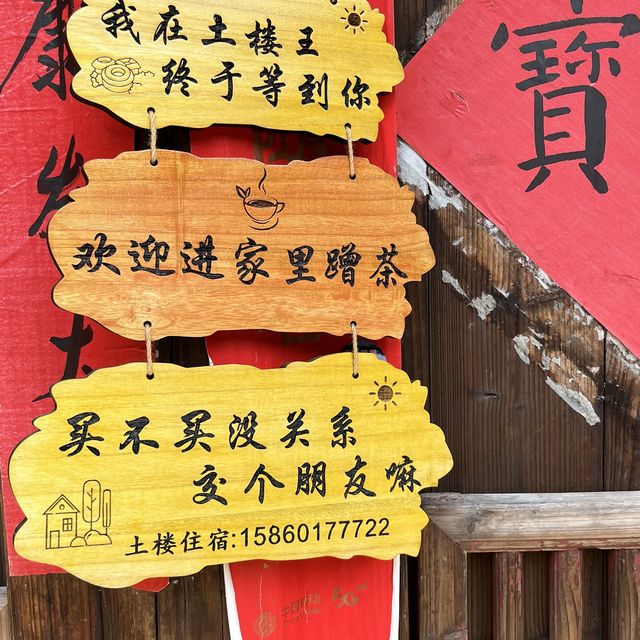 我在土楼王
终于等到你
欢迎进家里蹭茶
买不买没关系
交个朋友嘛
土楼住宿:15860177722
寶
康
中国移动
5G